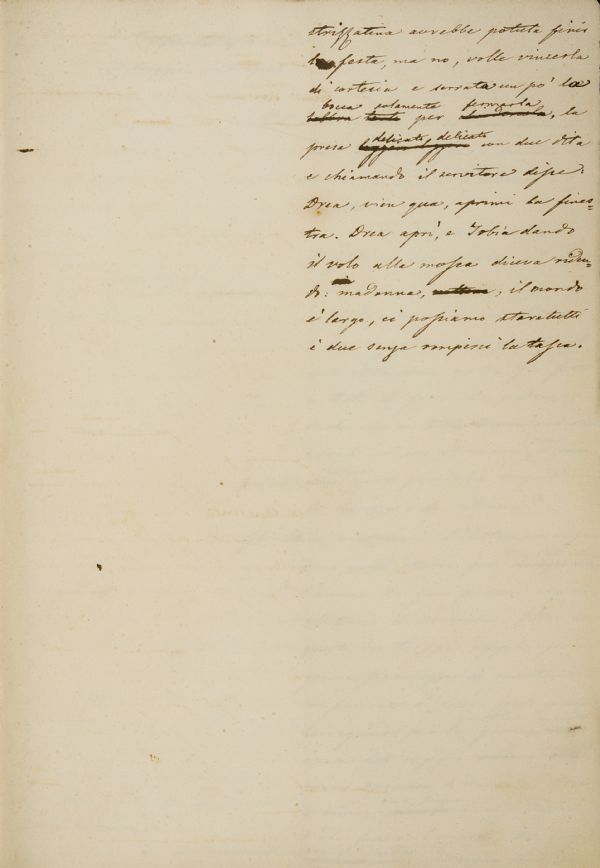 strizzatina avrebbe potuta finir
la festa, ma no, volle vincerla
di cortesia e serrata un po' la
bocca solamente fermarla
labbra per la
presa delicato delicato con due dita
e chiamando il servitore disse:
Drea, vien qua, aprimi la fines-
tra. Drea aprì, e Tobia dando
il volo alla mosca diceva riden-
do: madonna, il mondo
è largo, ci possiamo stare tutti
è due senza rompisci la tasca.